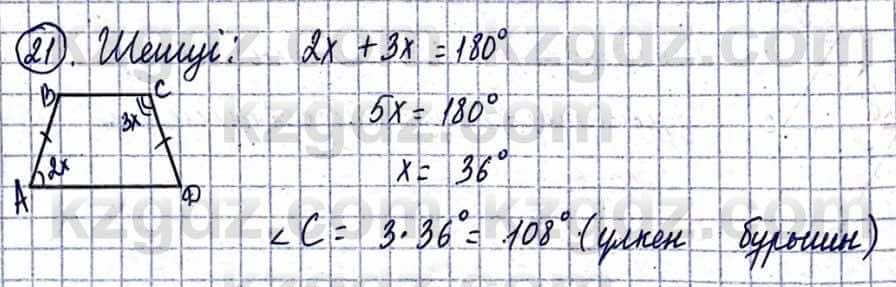 21. Шешуі: 2x + 3x = 180°
B C
3x
5x = 180°
2x
x = 36°
A D
∠C = 3·36° = 108° (үлкен бұрышин)
kzgdz.com